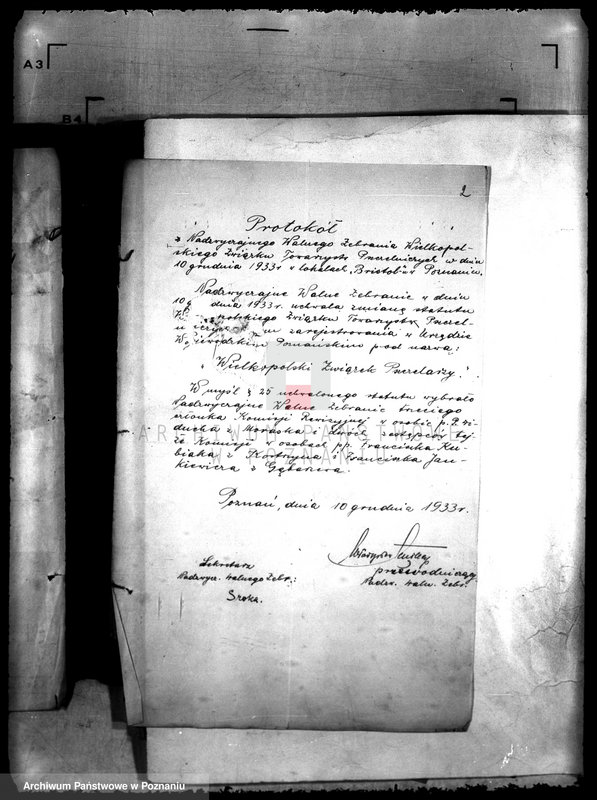 A3
B4
2
Protokół
z Nadzwyczajnego Walnego Zebrania Wielkopol-
skiego Związku Towarzystw Pszczelniczych w dniu
10 grudnia 1933 r. w lokalach "Bristolu" w Poznaniu.
Nadzwyczajne Walne Zebranie w dniu
10 g dnia 1933 r. uchwala zmianę statutu
skiego Związku Towarzystw Pszczel-
niczych zarejestrowania w Urzędzie
Wojewódzkim Poznańskim pod nazwą:
"Wielkopolski Związek Pszczelarzy."
W myśl § 25 uchwalonego statutu wybrało
Nadzwyczajne Walne Zebranie trzeciego
członka Komisji Rewizyjnej w osobie p.
ducha z Moraska i dwóch zastępców tej-
że Komisji w osobach pp. Franciszka Ku-
biaka z Franciszka Jan-
kiewicza z
ARCHIWUM PAŃSTWOWE
W POZNANIU
Poznań, dnia 10 grudnia 1933 r.
Sekretarz
Nadzwycz. Walnego Zebr.:
Sroka.
przewodniczący
Nadzw. Waln. Zebr.
Archiwum Państwowe w Poznaniu